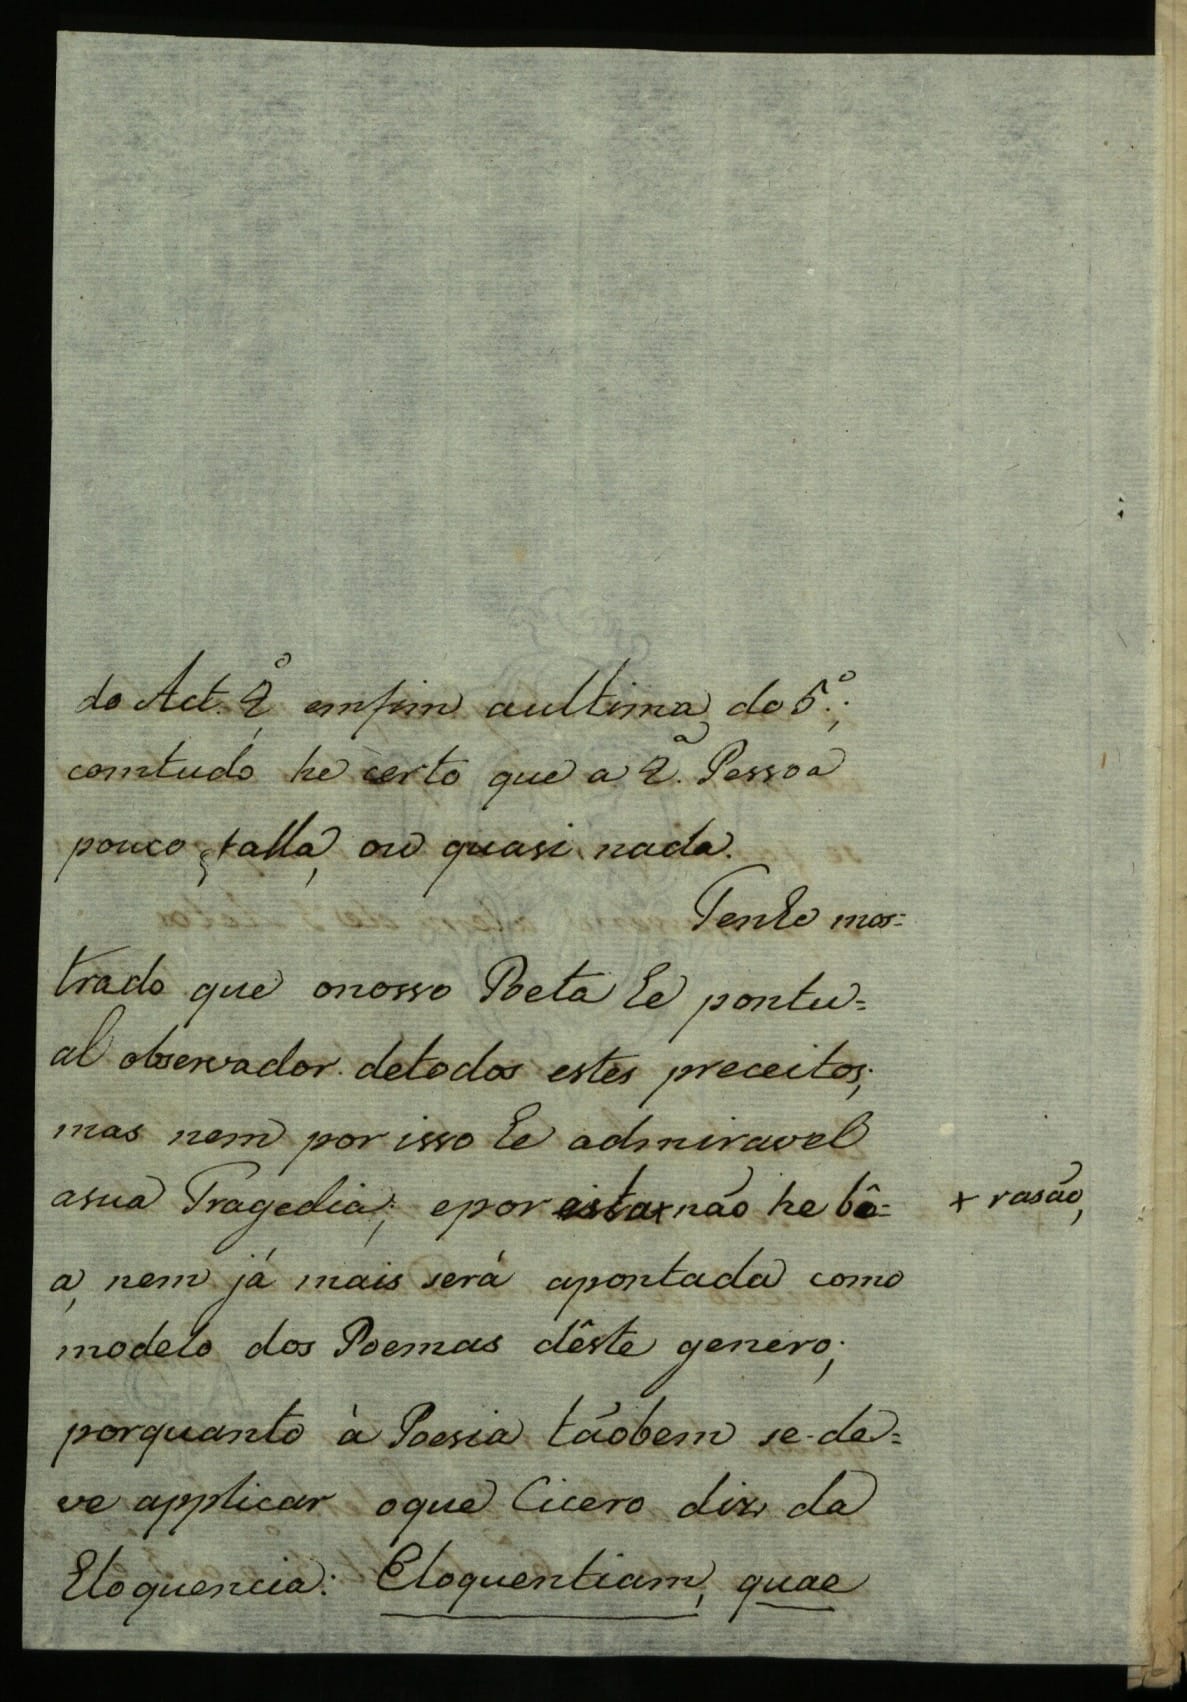 do Act. 2,º emfim aultima, do 5.º;
comtudo he certo que a 2.ª Pessoa
pouco falla, ou quasi nada.
Tenho mos=
trado que onosso Poeta he pontu=
al observador detodos estes preceitos;
mas nem por isso he admiravel
asua Tragedia; epor esta + não he bô=
a, nem já mais será apontada como
modelo dos Poemas dêste genero;
porquanto à Poesia tãobem se-de=
ve applicar oque Cicero diz da
Eloquencia: Eloquentiam, quae
+ rasão,